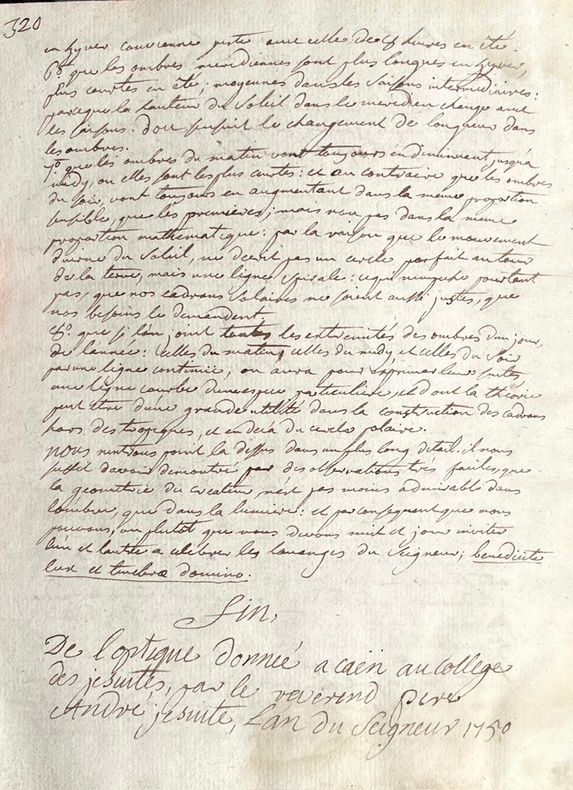 320
en hyver convienne juste avec celle de 8 heures en été.
6° que les ombres meridiennes sont plus longues en hyver,
plus courtes en été; moyennes dans les saisons intermediaires:
parceque la hauteur du Soleil dans le meridien change avec
les saisons. d'ou s'ensuit le changement de longueur dans
les ombres.
7° que les ombres du matin vont toujours en diminuant jusqu'a
midy, ou elles sont les plus courtes: et au contraire que les ombres
du soir, vont toujours en augmentant dans la meme proportion
sensible, que les premieres; mais non pas dans la meme
proportion mathematique: par la raison que le mouvement
diurne du Soleil, ne decrit pas un cercle parfait autour
de la terre, mais une ligne spirale: ce qui n'empeche pourtant
pas, que nos cadrans solaires ne soient aussi justes, que
nos besoins le demandent.
8° que si l'on joint toutes les extremités des ombres d'un jour
de l'année: celles du matin, celles du midy, et celles du soir
par une ligne continüe, on aura pour exprimer leur suite
une ligne courbe d'une espece particuliere, et dont la théorie
peut etre d'une grande utilité dans la construction des cadrans
hors des tropiques, et en deca du cercle polaire.
nous n'entrons point la dessus dans un plus long detail. il nous
suffit d'avoir demontré par des observations tres faciles, que
la geometrie du createur, n'est pas moins admirable dans
l'ombre, que dans la lumiere: et par consequent que nous
pouvons, ou plutot que nous devons nuit et jour inviter
l'un et l'autre a celebrer les louanges du Seigneur; benedicite
lux et tenebræ domino.
Fin,
De l'optique donnée a caën au college
des jesuites, par le reverend pere
André jesuite, L'an du Seigneur 1750